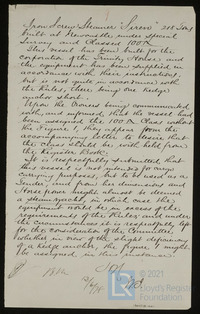 Iron Screw Steamer Siren 208 Tons
built at Newcastle under Special
Survey and Classed 100A
This vessel has been built for the
Corporation of the Trinity House, and
the equipment has been supplied in
accordance with their instructions,
but is not quite in accordance with
the Rules, there being one kedge
anchor short.
Upon the Owners being communicated
with, and informed, that the vessel had
been assigned the 100A Class without
the Figure 1, then appear from the
accompanying letter to desire that
the class should be with held from
the Register Book.
It is respectfully submitted that
this vessel is not intended for
carrying purposes, but to be used as a
Tender, and from her dimensions and
Horse power might almost be deemed
a Steam yacht, in which case the
equipment would be in excess of the
requirements of the Rules, and under
the circumstances it is respectfully left
for the consideration of the Committee,
whether in view of the slight deficiency
of a kedge anchor the figure 1 might
be assigned in this instance.
© 2021
Lloyd's Register
Foundation